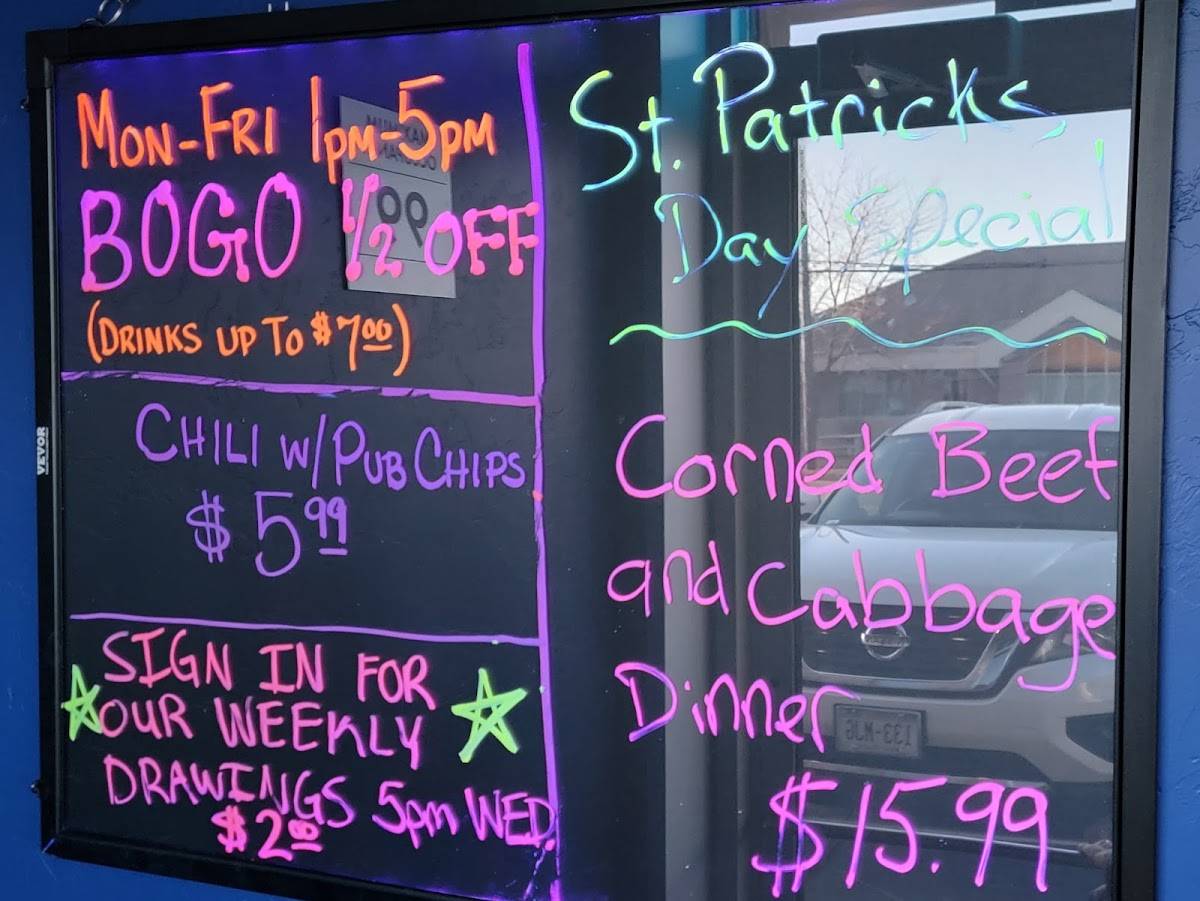 MON-FRI 1PM-5PM
BOGO 1/2 OFF
(DRINKS UP TO $7.00)
CHILI W/ PUB CHIPS
$5.99
SIGN IN FOR
OUR WEEKLY
DRAWINGS 5pm WED.
$2.00
St. Patricks
Day Special
Corned Beef
and Cabbage
Dinner
$15.99
VEVOR